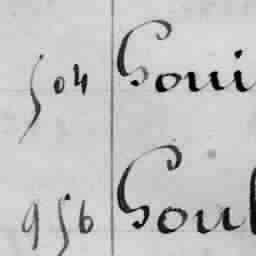 504 Goui
956 Goul